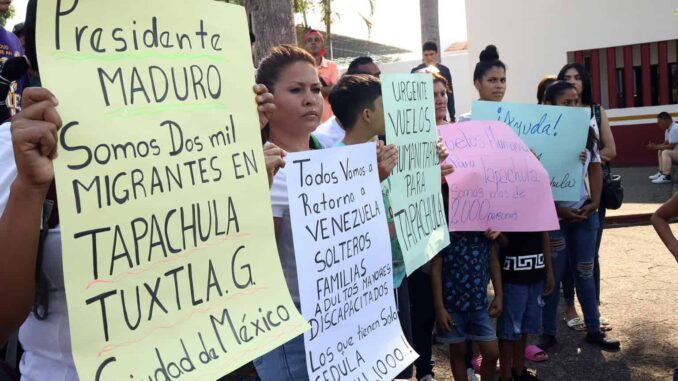 Presidente
MADURO
Somos Dos mil
MIGRANTES EN
TAPACHULA
TUXTLA.G
Ciudad de México
Todos Vamos a
Retorno a
VENEZUELA
SOLTEROS
FAMILIAS
ADULTOS MAYORES
DISCAPACITADOS
Los que tienen Solo
CEDULA
1000!
URGENTE
VUELOS
HUMANITARIO
PARA
TAPACHULA
Vuelos Humanit
Para Tapachula
Somos mas de
2000 personas
¡Ayuda!